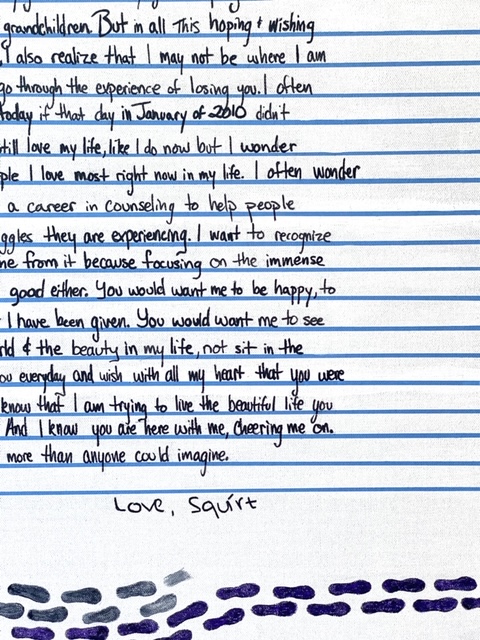 grandchildren. But in all this hoping & wishing
I also realize that I may not be where I am
go through the experience of losing you. I often
today if that day in January of 2010 didn't
till love my life, like I do now but I wonder
ple I love most right now in my life. I often wonder
a career in counseling to help people
ggles they are experiencing. I want to recognize
me from it because focusing on the immense
good either. You would want me to be happy, to
I have been given. You would want me to see
rld & the beauty in my life, not sit in the
ou everyday and wish with all my heart that you were
know that I am trying to live the beautiful life you
And I know you are here with me, cheering me on.
more than anyone could imagine.
Love, Squirt